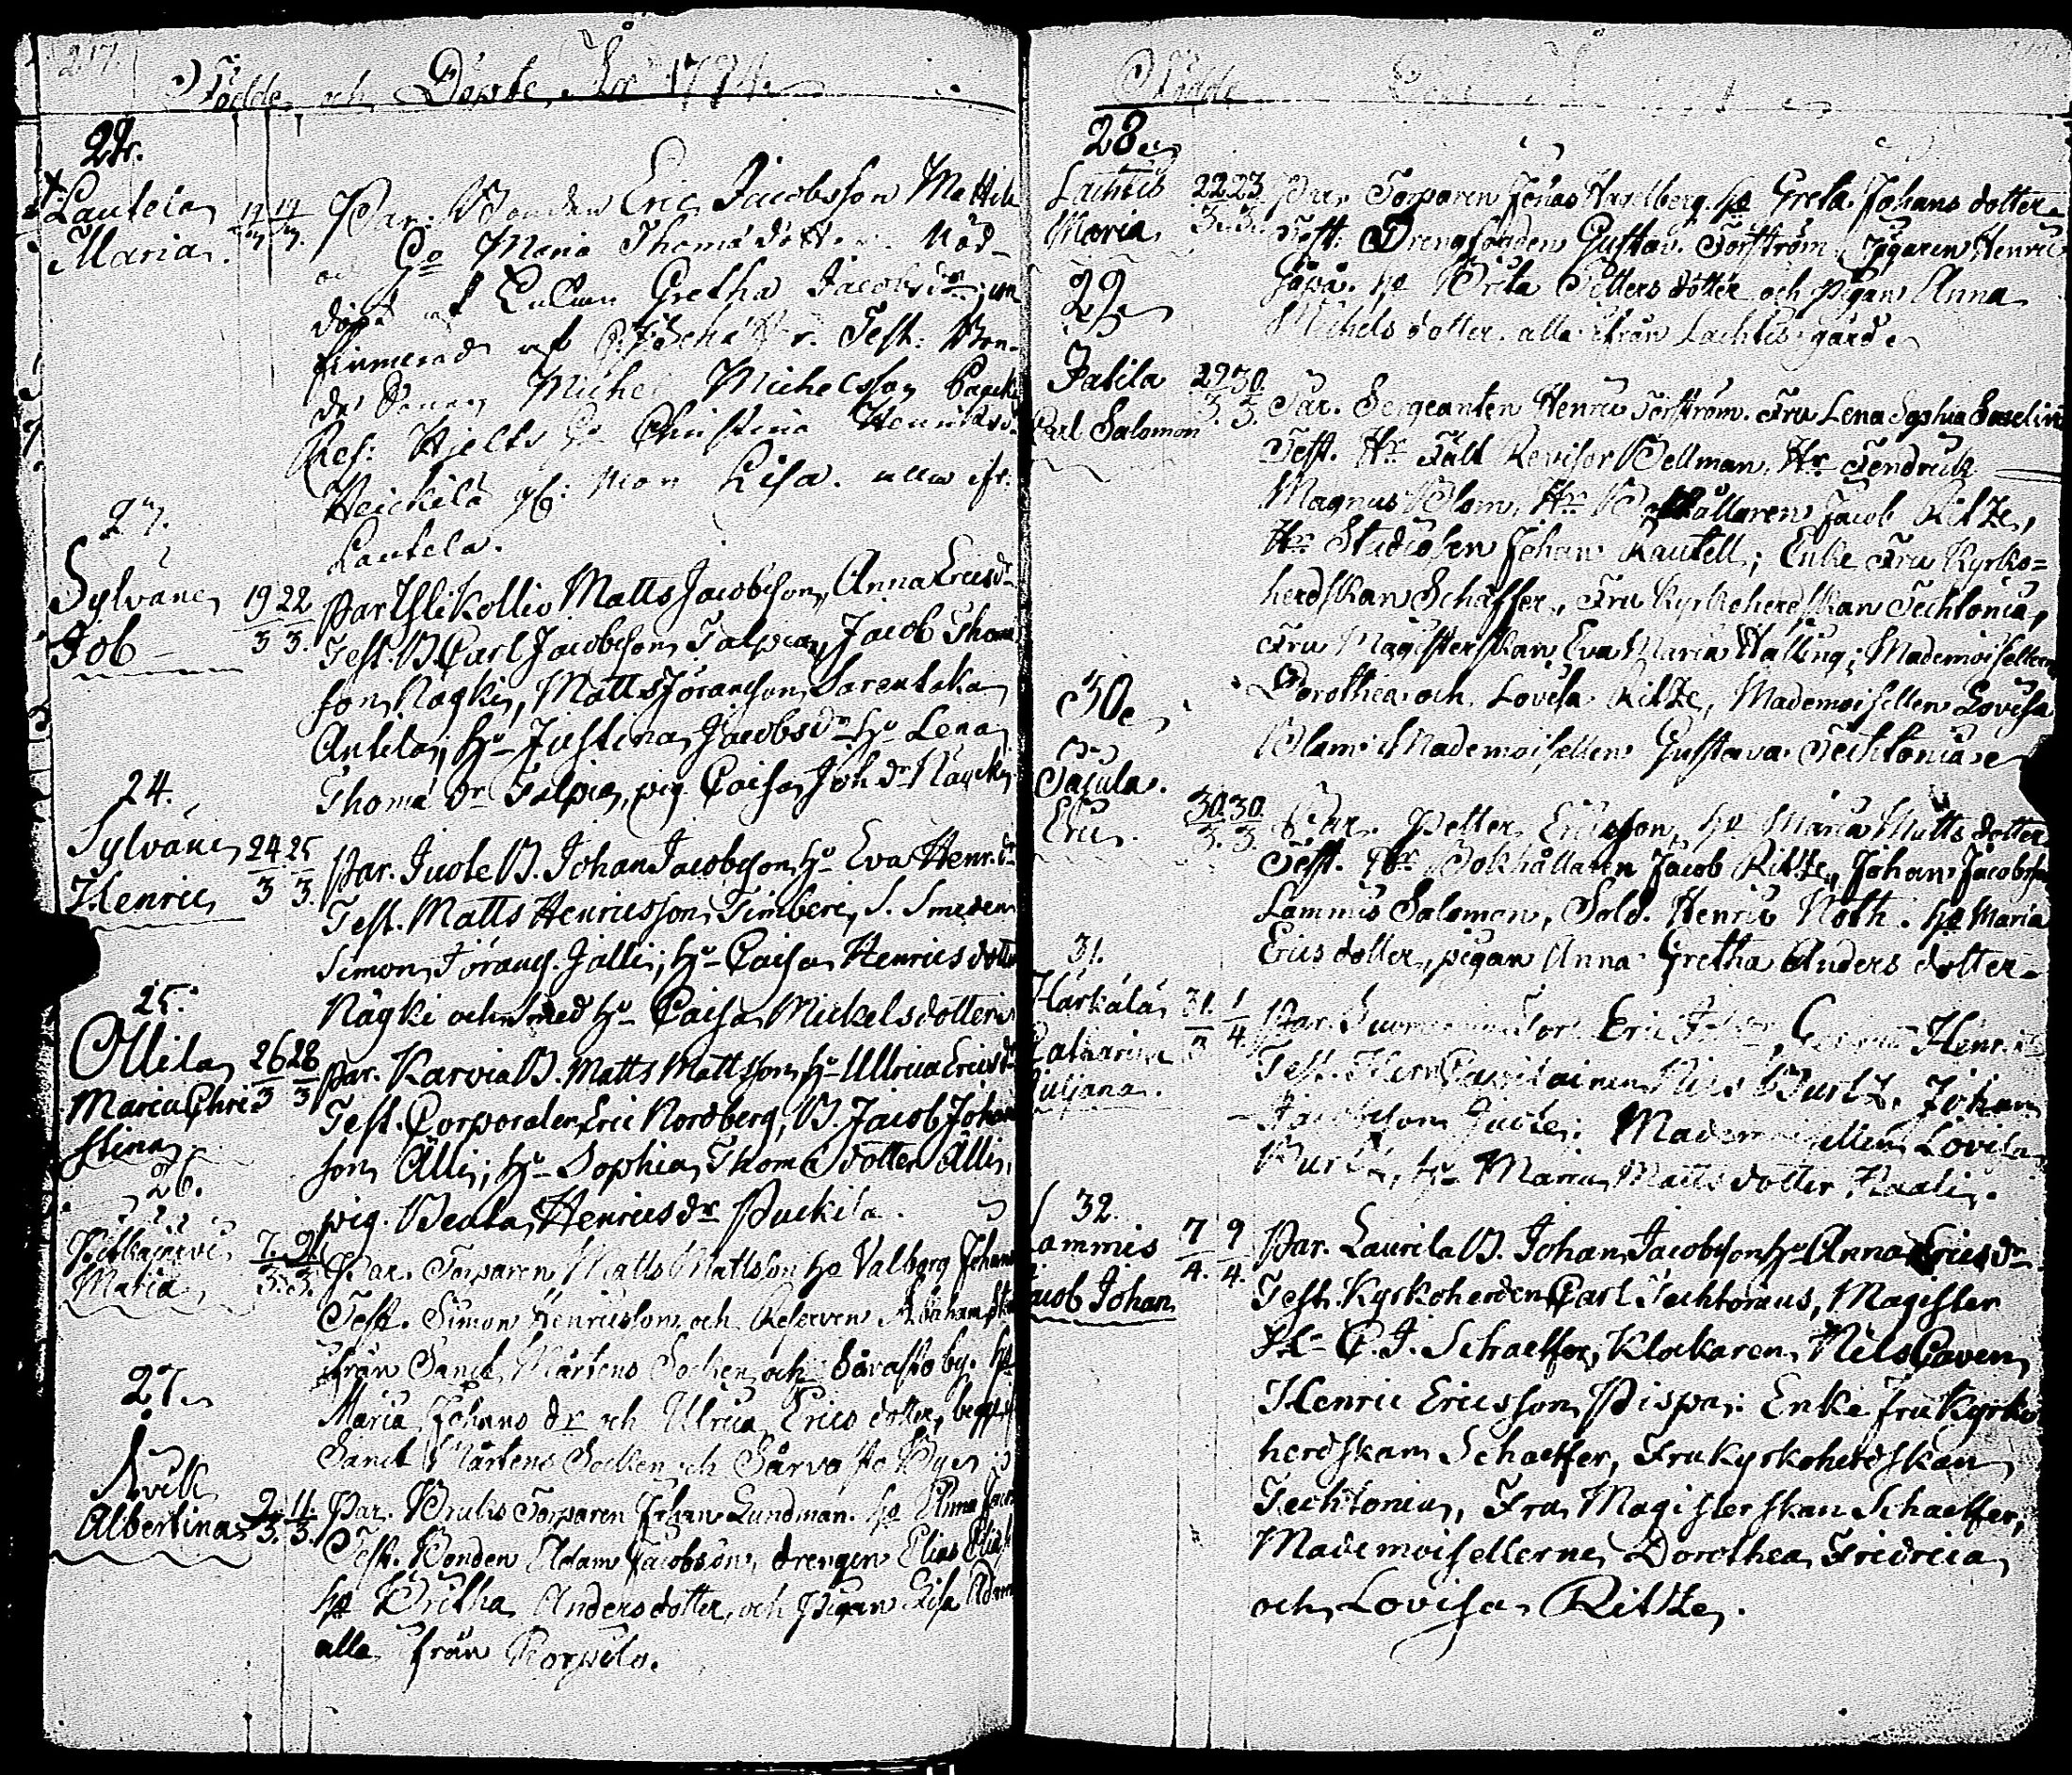 217.
Födde och Döpte År 1794.
22.
Lautela
Maria.
19 19
Par: Bonden Eric Jacobsson Mattila
Ho Maria Thomæ dott. Nöd-
döpt af Gretha Jacobs dr, con
firmerad af Schæffer. Test: Bon-
de Sonen Michel Michelsson
Res: Hielt Ho Christina Henriks d.
Heickilä Lisa. alla ifr:
Lautela.
23.
Sylvänä
Job
19 22
3 3.
Par. Isli Kollio Matts Jacobsson, Anna Erics dr
Test. B. Carl Jacobsson Talpia, Jacob Thoma
son Nägki, Matts Göransson Sarentaka
Antila; Ho Justina Jacobs dr Ho Lena
Thomæ dr Talpia, pig. Caisa Joh. dr Näycki
24.
Sylvänä
Henric
24 25
3 3.
Par. Juole B. Johan Jacobsson Ho Eva Henr. dr
Test. Matts Henricsson Timberi, S. Smeden
Simon Görans. Jälli; Ho Caisa Henrics dotter
Nägki och Ho Caisa Mickels dotter
25.
Ollila
Maria Chri
stina
26 28
3 3
Par. Karvia B. Matts Mattsson Ho Ulrica Erics dr
Test. Corporalen Eric Nordberg, B. Jacob Johan
son Älli; Ho Sophia Thomæ dotter Älli,
pig. Beata Henrics dr Puckila.
26.
Pitkäjärvi
Maria
7. 9.
3. 3.
Par. Torparen Matts Mattsson ho Valborg Johans
Test. Simon Henricsson och Reserven Abraham
ifrån Sanct Mårtens Socken och Särvasto by. ho
Maria Johans dr och Ulrica Erics dotter, begge ifr
Sanct Mårtens Socken och Särvasto By
27
Kuik
Albertina
9. 11.
3. 3.
Par. Bruks Torparen Johan Lundman. ho Anna Jacobs
Test. Bonden Adam Jacobsson, drengen Elias Elias
ho Britha Anders dotter, och Pigan Lisa Adams
alla från Korpilo.
Födde
28
Lachtis
Maria
22 23
3. 3.
Par. Torparen Jonas Hasselberg. ho Greta Johans dotter
Test. Drengsonden Gustav Torström, Jägaren Henric
ho Brita Petters dotter och Pigan Anna
Michels dotter. alla ifrån Lachtis gård
29
Jatila
Carl Salomon
29 30.
3. 3.
Par. Sergeanten Henric Torström. Fru Lena Sophia
Test. Hr Fält Revisor Bellman, Hr Fendrick
Magnus Blom, Hr Bokhållaren Jacob Ritze,
Hr Studiosen Johan Rautell; Enke Fru Kyrko-
herdskan Schæffer, Fru Kyrkoherdskan Techtonia,
Fru Magisterskan Eva Maria Halling; Mademoisellerna
Dorothea och Lovisa Ritze, Mademoisellen Lovisa
Blom Mademoisellen Gustava Techtonia
30
Sasula.
Eric.
30. 30.
3. 3.
Par. Petter Ericsson, ho Maria Matts dotter
Test. Hr Bokhållaren Jacob Ritze, Johan Jacobsson
Lammis Salomon, Sold. Henric Noth. ho Maria
Erics dotter, pigan Anna Gretha Anders dotter
31.
Härkälä
Catharina
Juliana.
31. 1
3 4.
Par. Eric Henr. dr
Test. Herr Capitainen Nils Burtz, Johan
Jacobsson Juole; Mademoisellen Lovisa
Burtz, Ho Maria Matts dotter Raali.
32.
Lammis
Jacob Johan
7 9
4. 4.
Par. Laurila B. Johan Jacobsson Ho Anna Erics dr
Test. Kyrkoherden Carl Techtonius, Magister
Hr C. J. Schaeffer, Klockaren Nils Caven,
Henric Ericsson Pispa; Enke fru Kyrko
herdskan Schaeffer, Fru Kyrkoherdskan
Techtonia, Fru Magisterskan Schaeffer;
Mademoisellerne Dorothea Fredricia
och Lovisa Ritze.